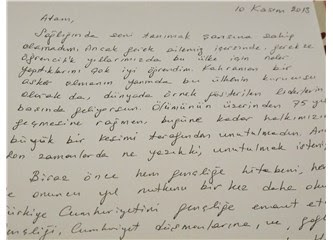 10 Kasım 2013
Atam,
Sağlığında seni tanımak şansına sahip
olamadım. Ancak gerek ailemiz içerisinde, gerekse
öğrencilik yıllarımızda bu ülke için neler
yaptıklarını çok iyi öğrendim. Kahraman bir
asker olmanın yanında bu ülkenin kurucusu
olarak da, dünyada örnek gösterilen liderlerin
başında geliyorsun. Ölümünün üzerinden 75 yıl
geçmesine rağmen, bugüne kadar halkımızın
büyük bir kesimi tarafından unutulmadın. An
son zamanlarda ne yazık ki, unutulmak isteni
Biraz önce hem gençliğe hitabeni, he
onuncu yıl nutkunu bir kez daha oku
Türkiye Cumhuriyetini gençliğe emanet et
Cumhuriyet düşmanlarına, ve,